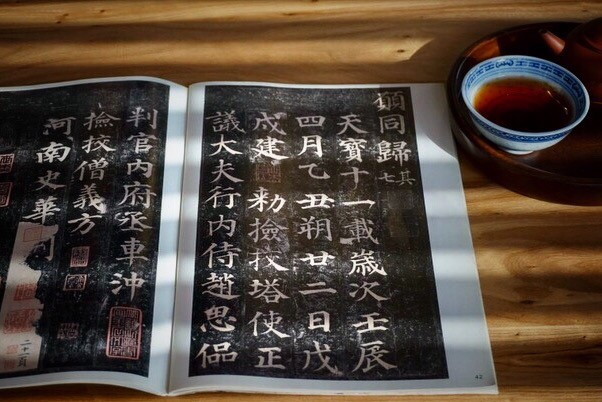 願同歸其七
天寶十一載歲次壬辰
四月乙丑朔廿二日戊
戌建勑撿挍塔使正
議大夫行內侍趙思偘
42
判官內府丞車沖
撿挍僧義方
河南史華